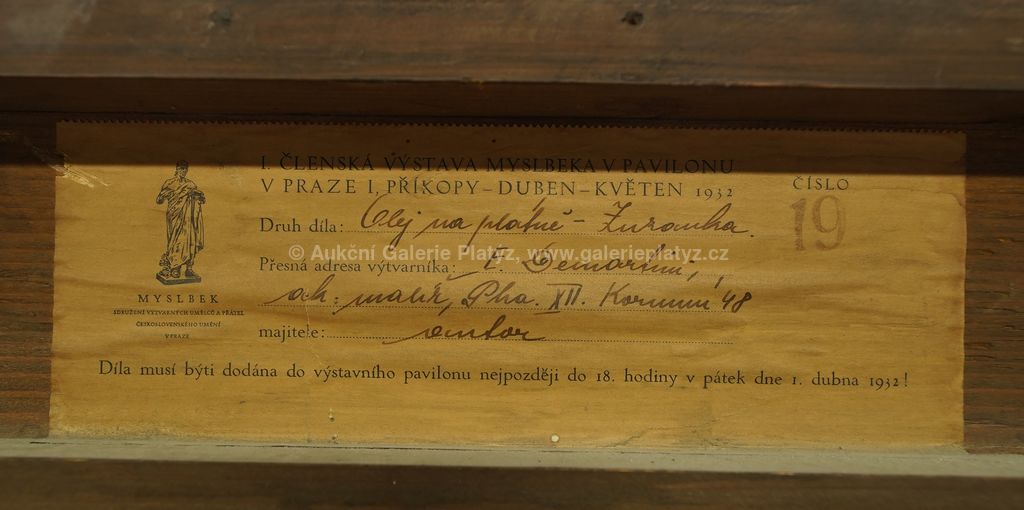 I. ČLENSKÁ VÝSTAVA MYSLBEKA V PAVILONU
V PRAZE I, PŘÍKOPY – DUBEN – KVĚTEN 1932
ČÍSLO
19
Druh díla: Olej na plátně – Žuranka.
© Aukční Galerie Platýz, www.galerieplatyz.cz
Přesná adresa výtvarníka: Demartini,
ak. malíř, Pha. XII. Korunní 48
majitele: autor
MYSLBEK
SDRUŽENÍ VÝTVARNÝCH UMĚLCŮ A PŘÁTEL
ČESKOSLOVENSKÉHO UMĚNÍ
V PRAZE
Díla musí býti dodána do výstavního pavilonu nejpozději do 18. hodiny v pátek dne 1. dubna 1932!